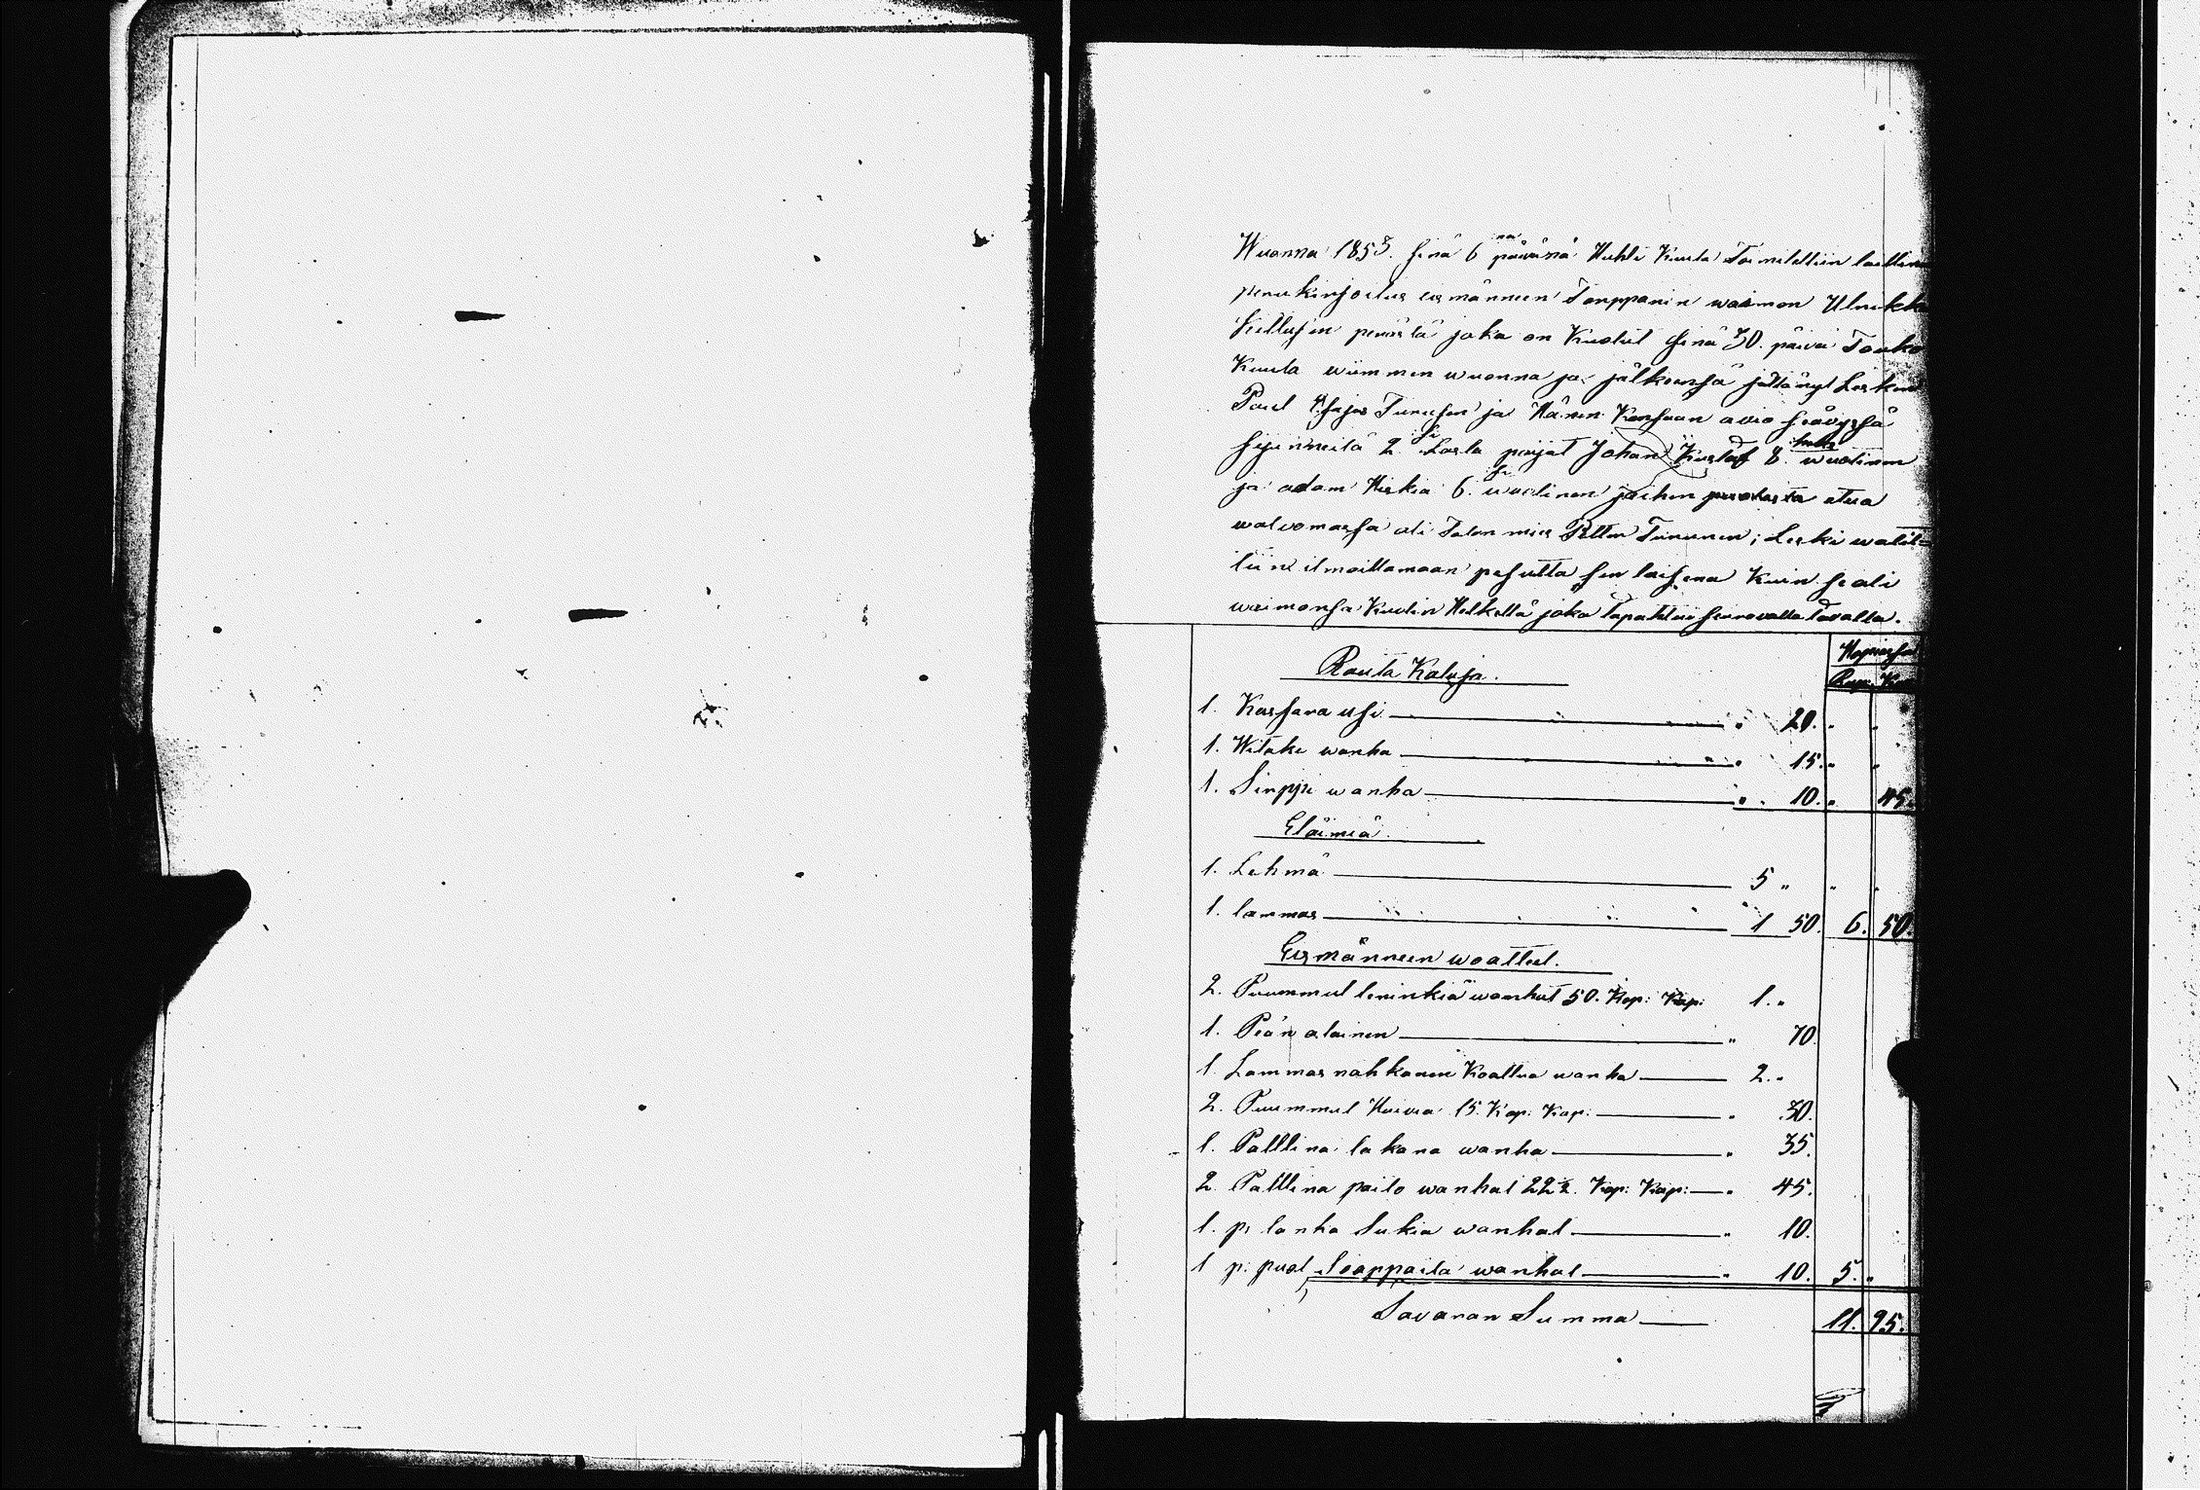 Wuonna 1853. sinä 6 na päiwänä Huhti Kuuta Toimitettiin laillinen
perukirjoitus eismänneen Torppanin waimon Ulrikka
Kettusen perästä joka on Kuolut sinä 30. päivä Touko
Kuuta wiimmen wuonna ja jälkeensä jättänyt Lesken
Paul Esajas Turusen ja Hänen Kanssaan avio säävyssä
sijinneitä 2 si Lasta pojat Johan Kustaf 8. wuotinen
ja adam Hiskia 6. si wuotinen joihen puolesta etua
walvomassa oli Talon mies Petter Turunen; Leski walit=
tiin ilmoittamaan pesutta sen laisena Kuin se oli
waimonsa Kuolin Hetkellä joka Tapahtui seuraavalla Tavalla.
Hopiassa
Rup. Ko
Rauta Kaluja.
1. Kassara usi " 20. " "
1. Witake wanha " 15. " "
1. Sirppi wanha " 10. " 45.
Eläimiä.
1. Lehmä 5 " " "
1. lammas 1 50. 6. 50.
Eismänneen woatteet.
2. Puummul leninkiä wanhat 50. Kop: Kap: 1. "
1. Peän alainen " 70.
1. Lammas nahkanen Koattua wanha 2. "
2. Puummul Huivia 15. Kop: Kap: " 30.
1. Palttina lakana wanha " 35.
2. Palttina paito wanhat 22½. Kop: Kap: " 45.
1. p: lanka Sukia wanhat " 10.
1 p: puol Soappaita wanhat " 10. 5. "
Savaran Summa 11. 95.